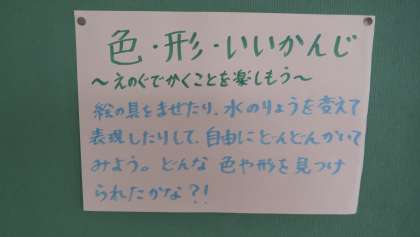 色・形・いいかんじ
～えのぐでかくことを楽しもう～
絵の具をまぜたり、水のりょうを変えて
表現したりして、自由にどんどんかいて
みよう。どんな色や形を見つけ
られたかな?!